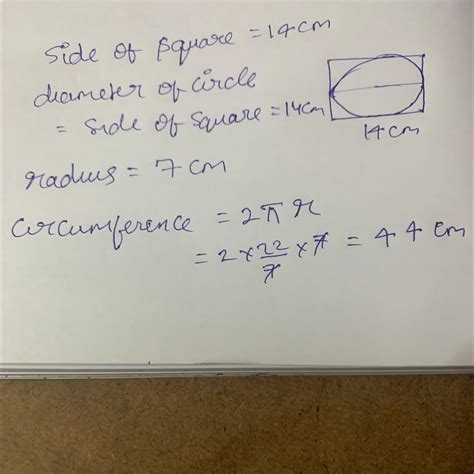 Side of square = 14cm
diameter of circle
= side of square = 14cm
14cm
radius = 7 cm
circumference = 2πr
= 2 × 22/7 × 7 = 44 cm